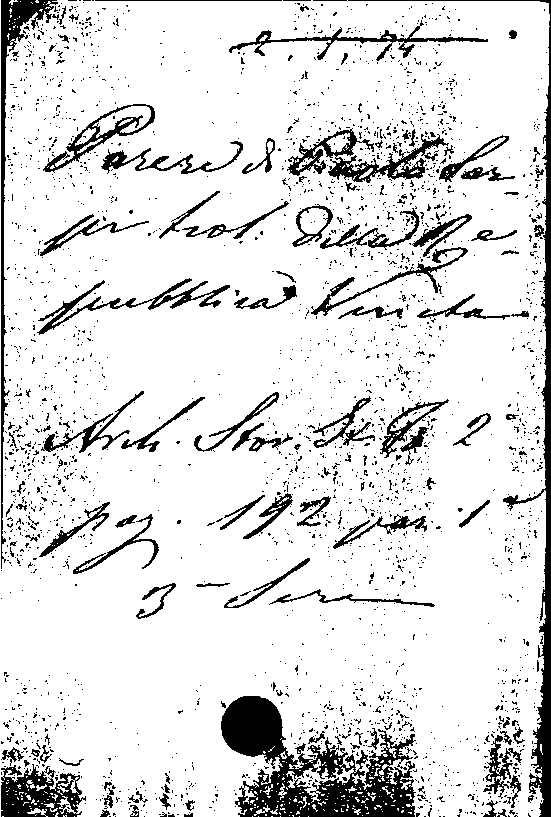 2. 1, 74
Pareri di Paolo Sar-
pi teol. della Re-
pubblica Veneta
Arch. Stor. It. 2°
pag. 192 par. 1ª
3ª Serie